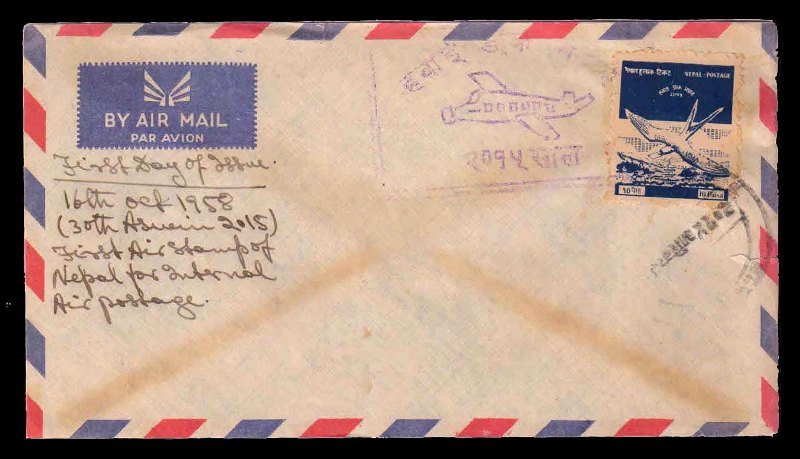 BY AIR MAIL
PAR AVION
First Day of Issue.
16th oct 1958
(30th Aswin 2015)
First Air Stamp of
Nepal for Internal
Air postage.
हवाई डाक
२०१५ साल
नेपाल हुलाक टिकट NEPAL-POSTAGE
२०१५
10 पैसा 10 PAISA